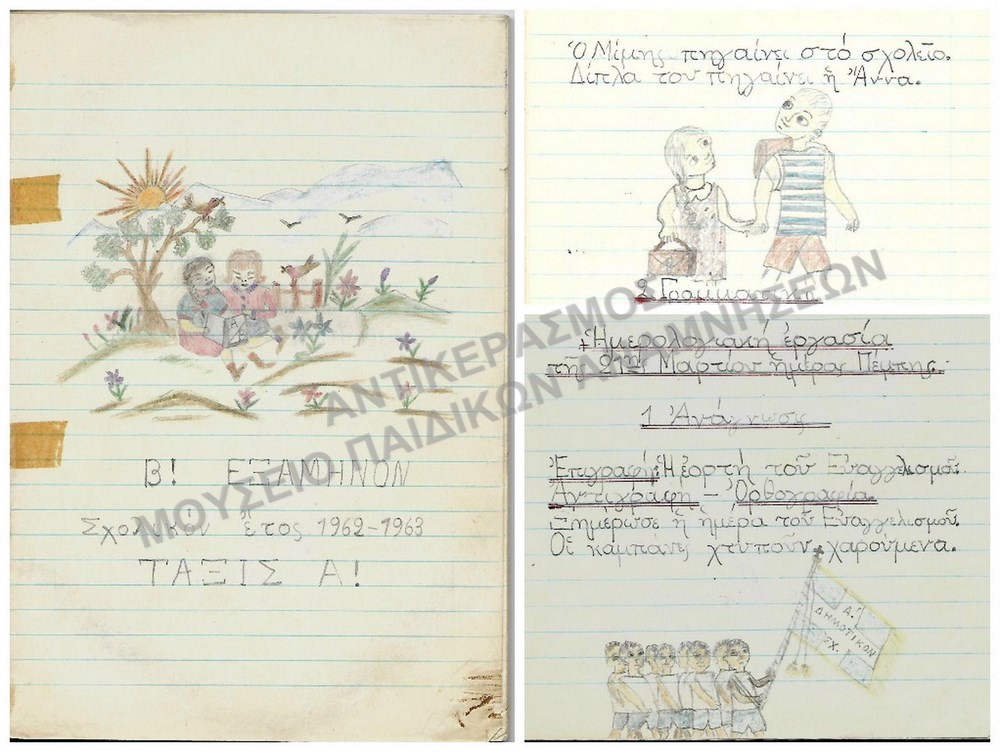 Β! ΕΞΑΜΗΝΟΝ
Σχολικόν ἔτος 1962-1963
ΤΑΞΙΣ Α!
Ὁ Μίμης πηγαίνει στό σχολεῖο.
Δίπλα του πηγαίνει ἡ Ἄννα.
2 Γραμματική
Ἡμερολογιακή ἐργασία
τῆς 21ης Μαρτίου ἡμέρα Πέμπτη.
1 Ἀνάγνωσις
Ἐπιγραφή: Ἡ ἑορτή τοῦ Εὐαγγελισμοῦ.
Ἀντιγραφή - Ὀρθογραφία
Ξημέρωσε ἡ ἡμέρα τοῦ Εὐαγγελισμοῦ.
Οἱ καμπάνες χτυποῦν χαρούμενα.
Α!
ΔΗΜΟΤΙΚΟΝ
ΣΧ.
ΑΝΤΙΚΕΡΑΣΜΟΣ
ΜΟΥΣΕΙΟ ΠΑΙΔΙΚΩΝ ΑΝΑΜΝΗΣΕΩΝ